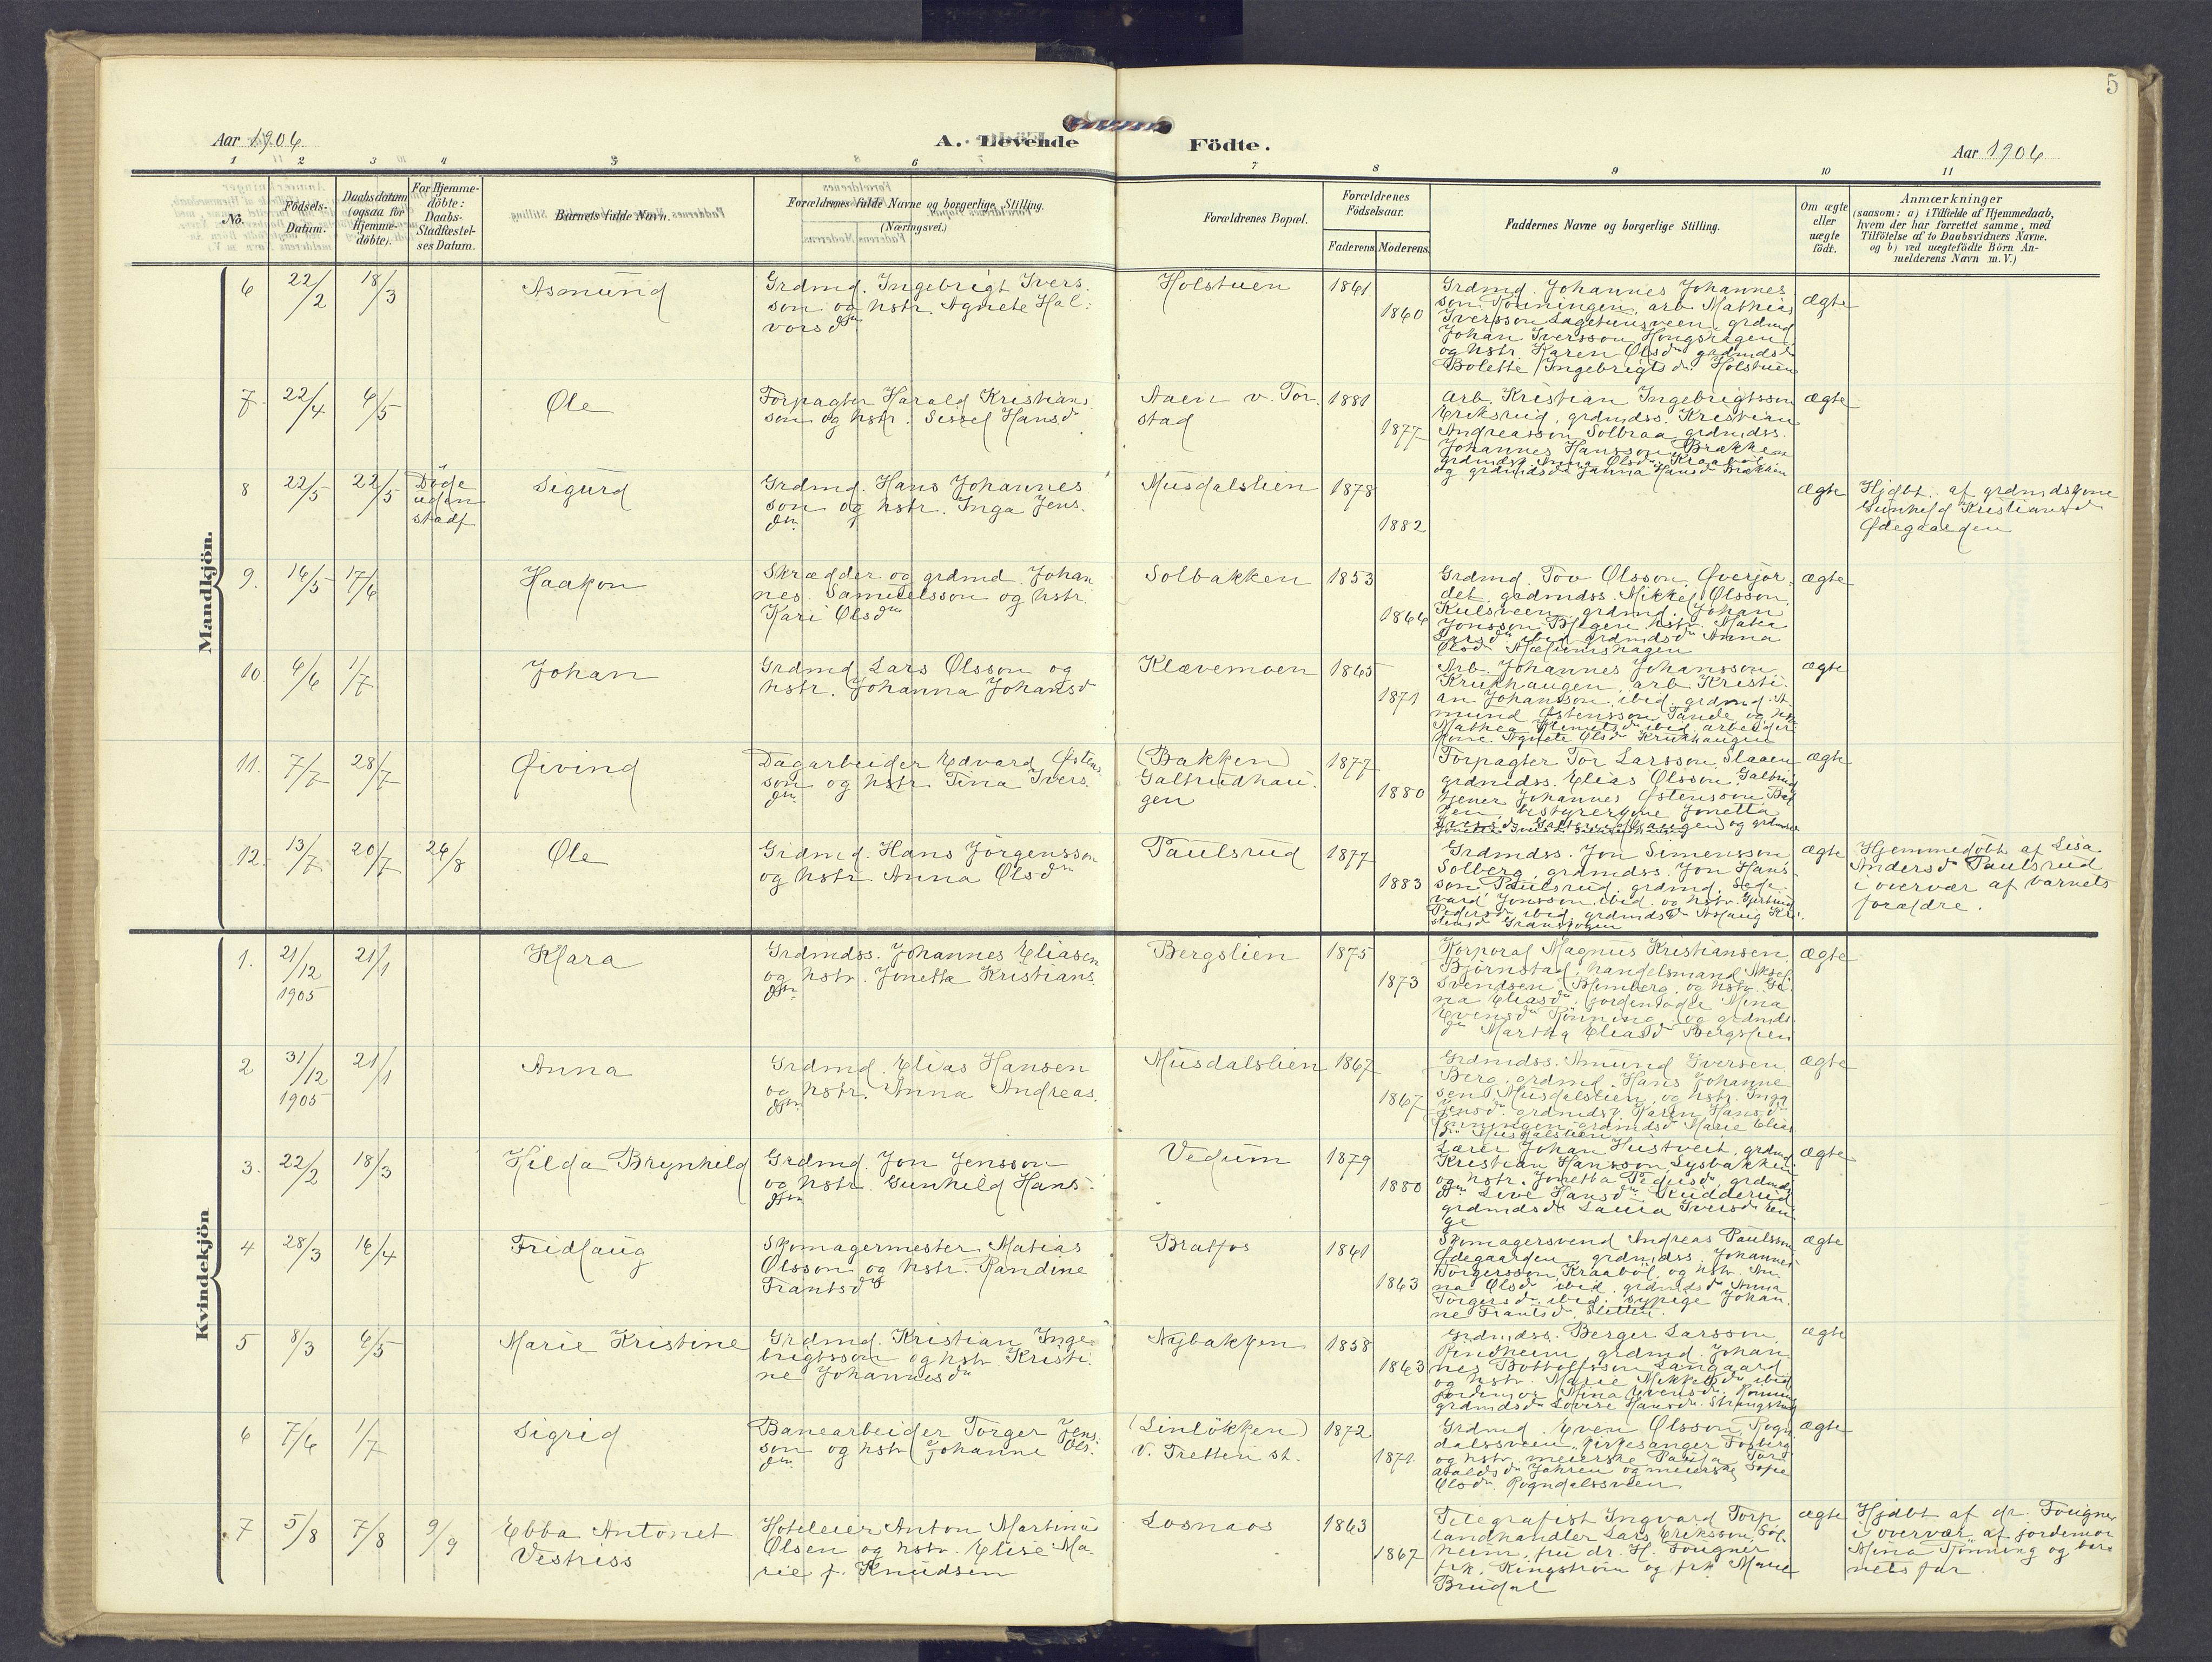 5
Aar 1906.
A. Levende
Födte.
Aar 1906
1 2 3 4 5 6 7 8 9 10 11
No.
Födsels-Datum.
Daabsdatum (ogsaa for Hjemme-döbte).
For Hjemme-döbte: Daabs-Stadfæstel-ses Datum.
Barnets fulde Navn.
Forældrenes fulde Navne og borgerlige Stilling.
(Næringsvei.)
Forældrenes Bopæl.
Forældrenes Födselsaar.
Faderens. Moderens.
Faddernes Navne og borgerlige Stilling.
Om ægte eller uægte födt.
Anmærkninger
(saasom: a) i Tilfælde af Hjemmedaab,
hvem der har forrettet samme, med
Tilföielse af to Daabsvidners Navne,
og b) ved uægtefödte Börn An-
melderens Navn m. V.)
Mandkjön.
6 22/2 18/3 Asmund
Grdmd. Ingebrigt Ivers.
son og hstr. Agnete Hal-
vorsdtr
Holstuen 1861 1860
Grdmd. Johannes Johannes
son Rönningen, arb. Mathias
Iversson, grdmd
Johan Iversson Hongshagen
og hstr. Karen Olsdr grdmdsdr
Bolette Ingebrigtsdr. Holstuen
ægte
7. 22/4 6/5 Ole
Forpagter Harald Kristians
son og hstr. Sissel Hansd
Aaen v. Tor.
stad
1881 1877
Arb. Kristian Ingebrigtsson
Eriksrud, grdmdss. Kristian
Andreasson Solbraa grdmdss.
Johannes Hansson Brækken
grdmdsk Anna Olsdr Kraaböl
og grdmdsdr Janna Hansd Brækken
ægte
8 22/5 22/5 Döde
uden
stadf.
Sigurd
Grdmd. Hans Johannes
son og hstr. Inga Jens.
dtr.
Musdalslien 1878 1882
ægte
Hjdbt. af grdmdskone
Gunhild Kristiansd
Ödegaarden
9. 16/5 17/6 Haakon
Skrædder og grdmd. Johan
nes Samuelsson og hstr.
Kari Olsdtr
Solbakken 1853 1866
Grdmd. Tov Olsson, Överjor
det, grdmdss. Mikkel Olsson,
Kulsveen, grdmd. Johan
Jonsson, hstr. Mathea
Larsdr. ibid grdmdsdr Anna
Olsdr
ægte
10. 6/6 1/7 Johan
Grdmd Lars Olsson og
hstr. Johanna Johansd
Klævemoen 1865 1871
Arb. Johannes Johansson
Krukhaugen, arb Kristi-
an Johansson, ibid, grdmd. A
mund Östensson Tande og hstr
Mathea ibid, arbeider
kone Agnete Olsdr Krukhaugen
ægte
11. 7/7 28/7 Öivind
Dagarbeider Edvard Östens
son og hstr. Tina Ivers.
dtr.
(Bakken)
Galtrudhau.
gen
1877 1880
Forpagter Tor Larsson, Slaaen
grdmdss. Elias Olsson Galtrud
tjener Johannes Östensson Bak
ken, bestyrerkone Jonetta
ægte
12. 13/7 20/7 26/8 Ole
Grdmd. Hans Jörgensson
og hstr. Anna Olsdtr
Paulsrud 1877 1883
Grdmdss. Jon Simensson
Solberg, grdmdss. Jon Hans-
son Paulsrud, grdmd. Sede-
vard Jonsson, ibid og hstr. Gjertrud
Pedersdr ibid, grdmdsdr Aslaug Kri-
stensd
ægte
Hjemmedöbt af Lisa
Andersd Paulsrud
i overvær af barnets
forældre.
Kvindekjön
1. 21/12 1905 21/1 Klara
Grdmdss. Johannes Eliasen
og hstr. Jonetta Kristians.
dtr.
Bergslien 1875 1873
Korporal Magnus Kristiansen
Björnstad, handelsmand Aksel
Svendsen Blomberg, og hstr. Gi-
na Eliasdr, jordemoder Mina
Evensdr Rönning, og grdmds
dr Martha Eliasdr Bergslien
ægte
2 31/12 1905 21/1 Anna
Grdmd. Elias Hansen
og hstr. Anna Andreas.
dtr.
Musdalslien 1867 1867
Grdmdss. Amund Iversen
Berg, grdmd. Hans Johanne
sen Musdalslien, og hstr. Inga
Jensdr. grdmdsk. Karen Hansdr
grdmdsd Marie Elias
dr Musdalslien
ægte
3. 22/2 18/3 Hilda Brynhild
Grdmd. Jon Jensson
og hstr. Gunhild Hans-
dtr.
Vedum 1879 1880
Lærer Johan Hustveit, grdmd.
Kristian Hansson Lysbakken
og hstr. Jonetta Pedersdr, grdmds
dtr Live Hansdr. Rudderud
grdmdsdr Laura Iversdr En
ge
ægte
4 28/3 16/4 Fridlaug
Skomagermester Matias
Olsson og hstr. Randine
Frantsdtr
Bratfos 1861 1863
Skomagersvend Andreas Paulsson
Ödegaarden, grdmdss. Johannes
Torgersson, Kraaböl, og hstr. An-
na Olsd ibid. grdmdsdr Anna
Torgersdr. ibid, sypige Johan
ne Frantsdr Sletten.
ægte
5 8/3 6/5 Marie Kristine
Grdmd. Kristian Inge-
brigtsson og hstr. Kristi.
ne Johannesdr
Nybakken 1858 1863
Grdmdss. Berger Larsson,
Rindheim grdmd. Johan
nes Bottolfsson Langaard
og hstr. Marie Mikkelsdr ibid
jordemor Mina Evensdr. Rönning
grdmdsdr Lovise Hansdr.
ægte
6 7/6 1/7 Sigrid
Banearbeider Torger Jens-
son og hstr Johanne Ols.
dtr.
(Linlökken)
v. Tretten st.
1872 1871.
Grdmd. Even Olsson, Rogn
dalssveen, kirkesanger Fosberg
og hstr. meierske Paula Tor
aldsdr Jahren og meierske Sofie
Olsdr. Rogndalssveen
ægte
7 5/8 7/8 9/9 Ebba Antonet
Vestriss
Hoteleier Anton Martinu
Olsen og hstr. Elise Ma-
rie f. Knudsen
Losnaos 1863 1867
Telegrafist Ingvard Torp
landhandler Lars Eriksson Sol
heim, fru dr. H. Fougner
frk. Ringstrøm og frk Marie
Brudal
ægte
Hjdbt af dr. Fougner
i overvær af jordemor
Mina Rönning og bar-
nets far.